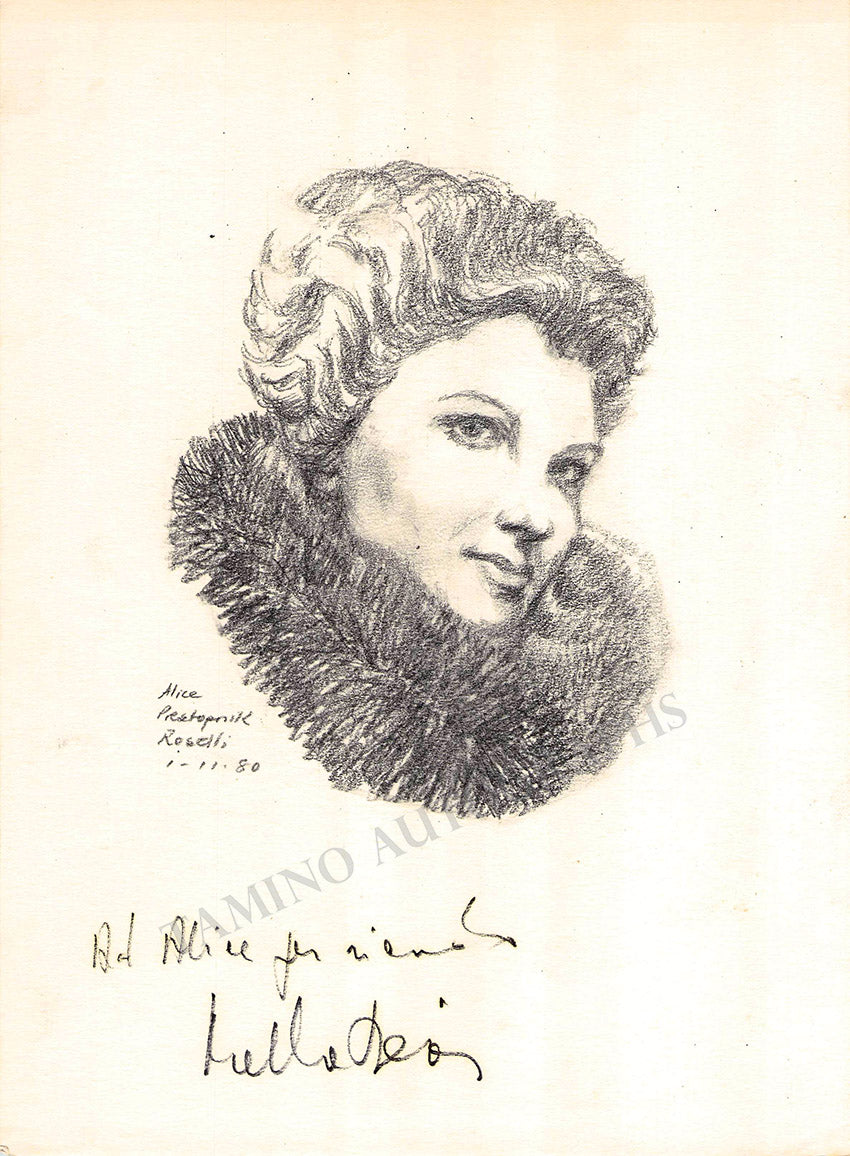 Alice
Prestopnik
Roselli
1-11-80
TAMINO AUT HS
Ad Alice per ricordo